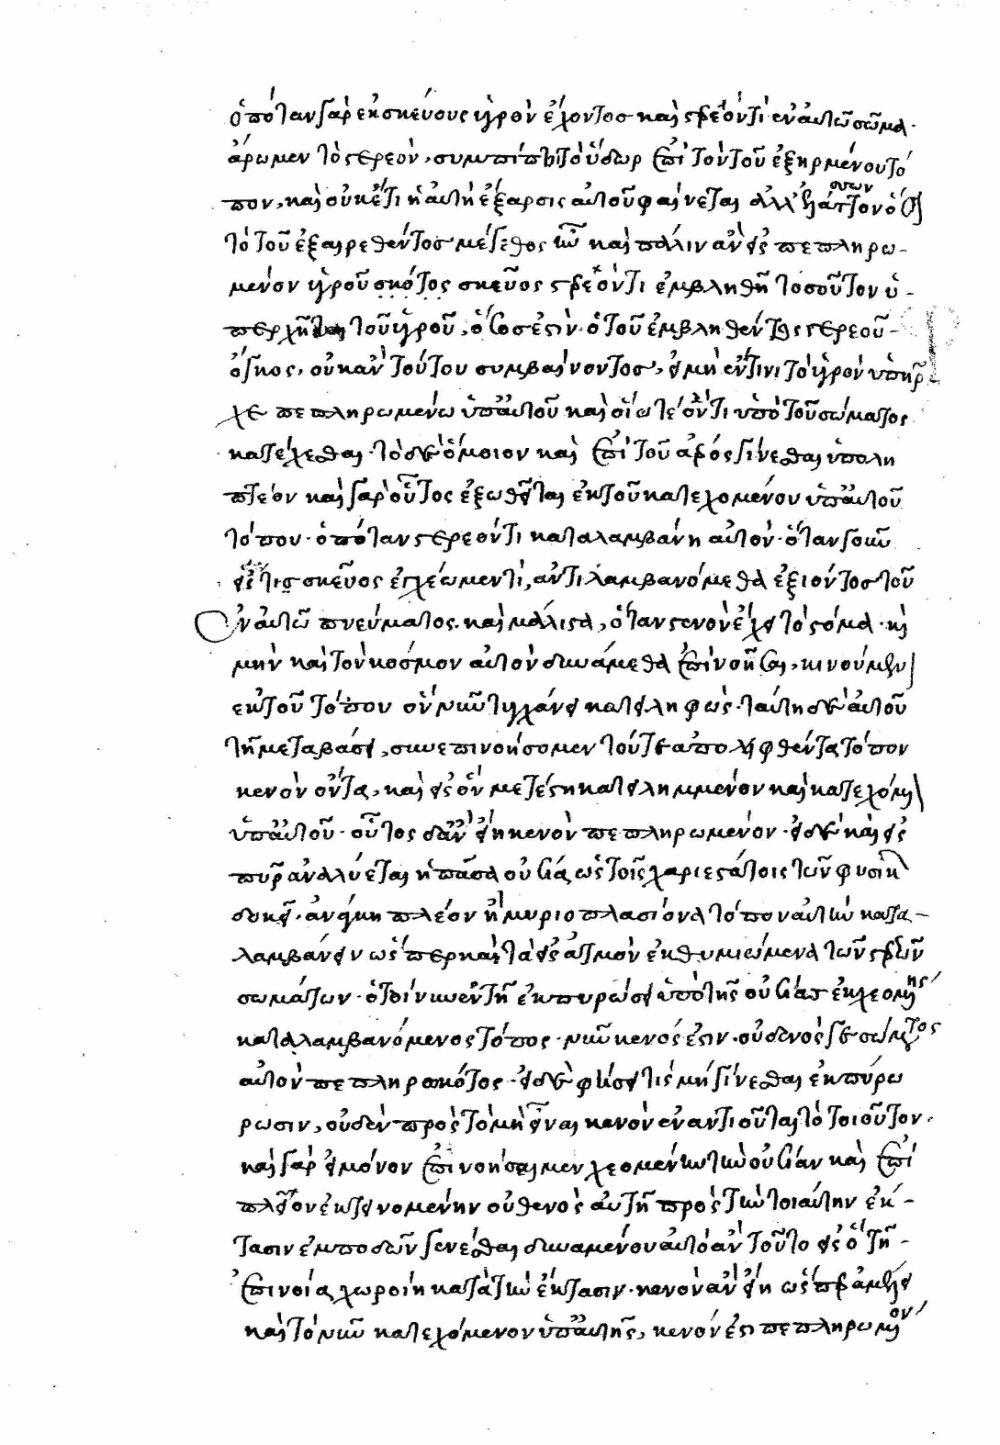 ὁπόταν γὰρ ἐκ σκεύους ὑγρὸν ἔχοντος καὶ στερεόν τι ἐν αὐτῷ σῶμα
ἄρωμεν τὸ στερεὸν, συμπίπτει τὸ ὕδωρ ἐπὶ τὸν τοῦ ἐξῃρμένου τό
πον, καὶ οὐκέτι ἡ αὐτὴ ἔξαρσις αὐτοῦ φαίνεται ἀλλ'
τὸ τοῦ ἐξαιρεθέντος μέγεθος ἦν καὶ πάλιν ἂν εἰς πεπληρω-
μένον ὑγροῦ σκεῦος στερεόν τι ἐμβληθῇ τοσοῦτον ὑ-
περχεῖται τοῦ ὑγροῦ, ὅσος ἐστὶν ὁ τοῦ ἐμβληθέντος στερεοῦ
ὄγκος, οὐκ ἂν τούτου συμβαίνοντος, εἰ μὴ ἔν τινι τὸ ὑγρὸν ὑπῆρ
χε πεπληρωμένῳ ὑπ' αὐτοῦ καὶ οἵῳ τε ὄντι ὑπὸ τοῦ σώματος
κατέχεσθαι. τὸ δὲ ὅμοιον καὶ ἐπὶ τοῦ ἀέρος γίνεσθαι ὑπολη
πτέον καὶ γὰρ οὗτος ἐξωθεῖται ἐκ τοῦ κατεχομένου ὑπ' αὐτοῦ
τόπου. ὁπόταν στερεόν τι καταλαμβάνῃ αὐτόν. ὅταν γοῦν
εἴς τι σκεῦος ἐγχέωμέν τι, ἀντιλαμβανόμεθα ἐξιόντος τοῦ
ἐν αὐτῷ πνεύματος. καὶ μάλιστα, ὅταν στενὸν ἔχει τὸ στόμα. καὶ
μὴν καὶ τὸν κόσμον αὐτὸν δυνάμεθα ἐπινοῆσαι, κινούμενον
ἐκ τοῦ τόπου ὃν νῦν τυγχάνει κατειληφώς. ταύτῃ δὲ αὐτοῦ
τῇ μεταβάσει, συνεπινοήσομεν τόν τε ἀπολειφθέντα τόπον
κενὸν ὄντα, καὶ εἰς ὃν μετέστη κατειλημμένον καὶ κατεχόμενον
ὑπ' αὐτοῦ. οὗτος δ' ἂν εἴη κενὸν πεπληρωμένον. εἰ δὲ καὶ εἰς
πῦρ ἀναλύεται ἡ πᾶσα οὐσία, ὡς τοῖς χαριεστάτοις τῶν φυσικῶν
δοκεῖ. ἀνάγκη πλέον ἢ μυριοπλασίονα τόπον αὐτὴν κατα-
λαμβάνειν ὥσπερ καὶ τὰ εἰς ἀτμὸν ἐκθυμιώμενα τῶν στερεῶν
σωμάτων. ὁ τοίνυν ἐν τῇ ἐκπυρώσει ὑπὸ τῆς οὐσίας ἐκχεομένης
καταλαμβανόμενος τόπος. νῦν κενός ἐστιν. οὐδενός γε σώματος
αὐτὸν πεπληρωκότος. εἰ δὲ φήσει τις μὴ γίνεσθαι ἐκπύρω
ρωσιν, οὐδὲν πρὸς τὸ μὴ εἶναι κενὸν ἐναντιοῦται τὸ τοιοῦτον.
καὶ γὰρ εἰ μόνον ἐπινοήσαιμεν χεομένην τὴν οὐσίαν καὶ ἐπὶ
πλεῖον ἐκτεινομένην οὐθενὸς αὐτῇ πρὸς τὴν τοιαύτην ἔκ-
τασιν ἐμποδὼν γενέσθαι δυναμένου αὐτὸ ἂν τοῦτο εἰς ὃ τῇ
ἐπινοίᾳ χωροίη κατὰ τὴν ἔκτασιν. κενὸν ἂν εἴη
καὶ τὸ νῦν κατεχόμενον ὑπ' αὐτῆς, κενόν ἐστι πεπληρωμένον